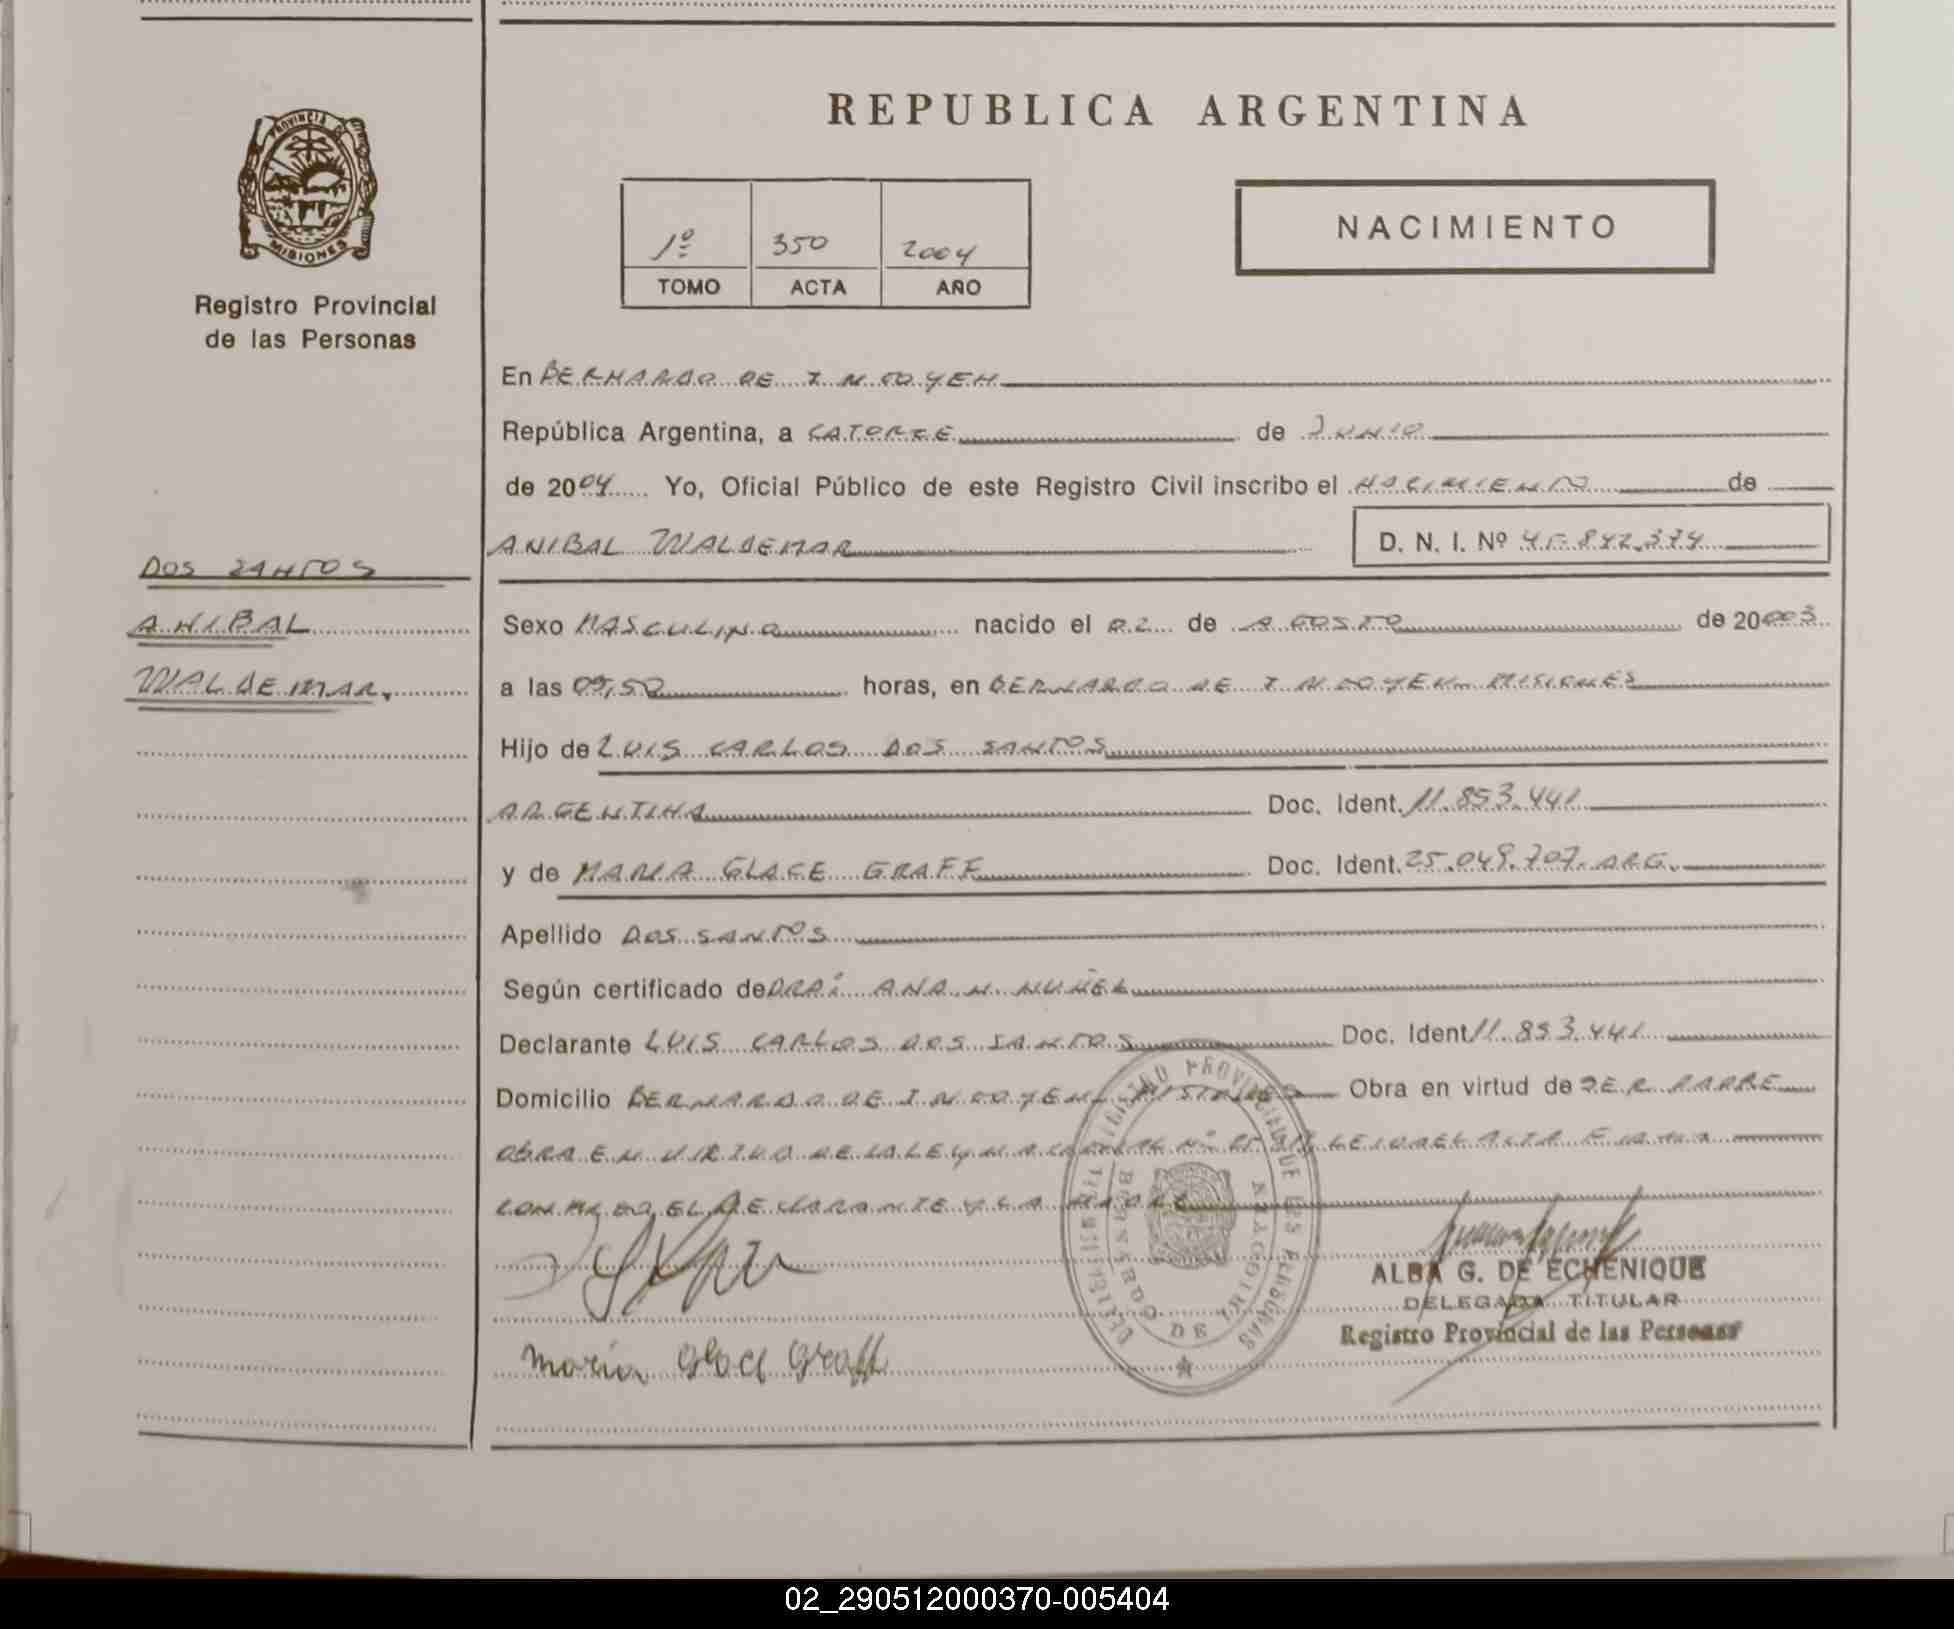 REPUBLICA ARGENTINA
PROVINCIA DE MISIONES
Registro Provincial
de las Personas
1º 350 2004
TOMO ACTA AÑO
NACIMIENTO
En BERNARDO DE IRIGOYEN
República Argentina, a CATORCE de JUNIO
de 2004 Yo, Oficial Público de este Registro Civil inscribo el NACIMIENTO de
ANIBAL WALDEMAR D. N. I. Nº 45.842.374
DOS SANTOS
ANIBAL
WALDEMAR.
Sexo MASCULINO nacido el 02 de AGOSTO de 20003
a las 09,50 horas, en BERNARDO DE IRIGOYEN MISIONES
Hijo de LUIS CARLOS DOS SANTOS
ARGENTINA Doc. Ident. 11.853.441
y de MARIA GLACE GRAFF Doc. Ident. 25.049.707. ARG.
Apellido DOS SANTOS
Según certificado de DRA: ANA N. NUÑEZ
Declarante LUIS CARLOS DOS SANTOS Doc. Ident 11.853.441
Domicilio BERNARDO DE IRIGOYEN MISIONES Obra en virtud de SER PADRE
OBRA EN VIRTUD DE LA LEY NACIONAL Nº LEIDA EL ACTA FIRMAN
CONMIGO EL DECLARANTE Y LA MADRE
Maria Glace Graff
REGISTRO PROVINCIAL DE LAS PERSONAS
BERNARDO DE IRIGOYEN
ALBA G. DE ECHENIQUE
DELEGADA TITULAR
Registro Provincial de las Personas
02_290512000370-005404